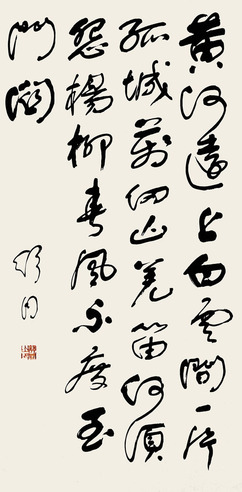 黄河遠上白雲間一片
孤城萬仞山羌笛何須
怨楊柳春風不度玉
門關
舒同